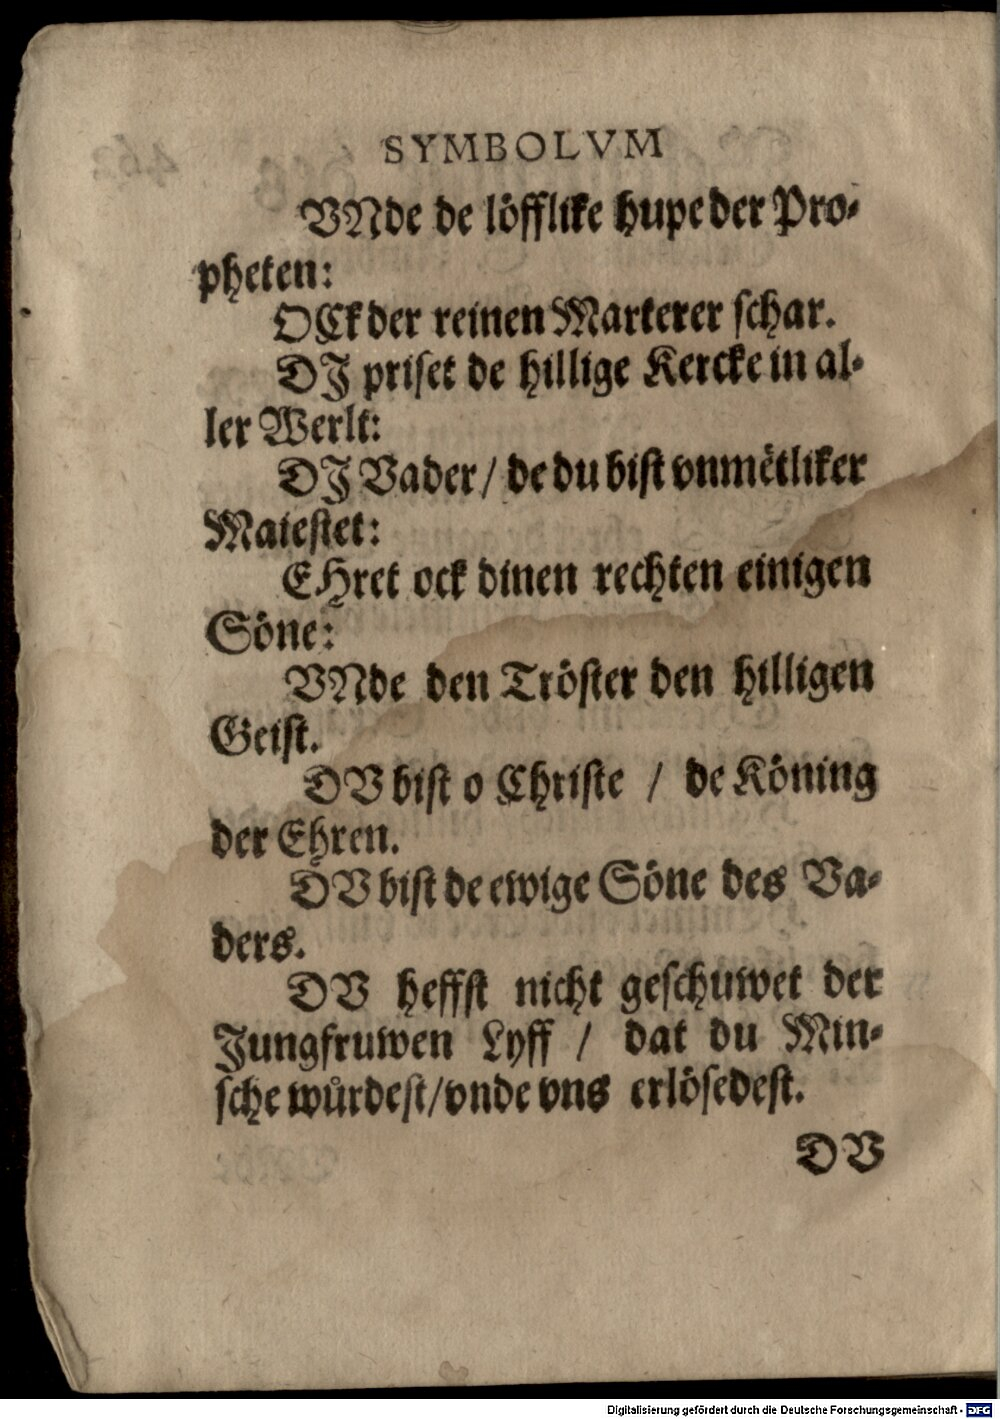 SYMBOLVM
VNde de löfflike hupe der Pro-
pheten:
OCk der reinen Marterer schar.
DJ priset de hillige Kercke in al-
ler Werlt:
DJ Vader / de du bist vnmëtliker
Maiestet:
EHret ock dinen rechten einigen
Söne:
VNde den Tröster den hilligen
Geist.
DV bist o Christe / de Köning
der Ehren.
DV bist de ewige Söne des Va-
ders.
DV heffst nicht geschuwet der
Jungfruwen Lyff / dat du Min-
sche wůrdest/vnde vns erlösedest.
DV
Digitalisierung gefördert durch die Deutsche Forschungsgemeinschaft - DFG